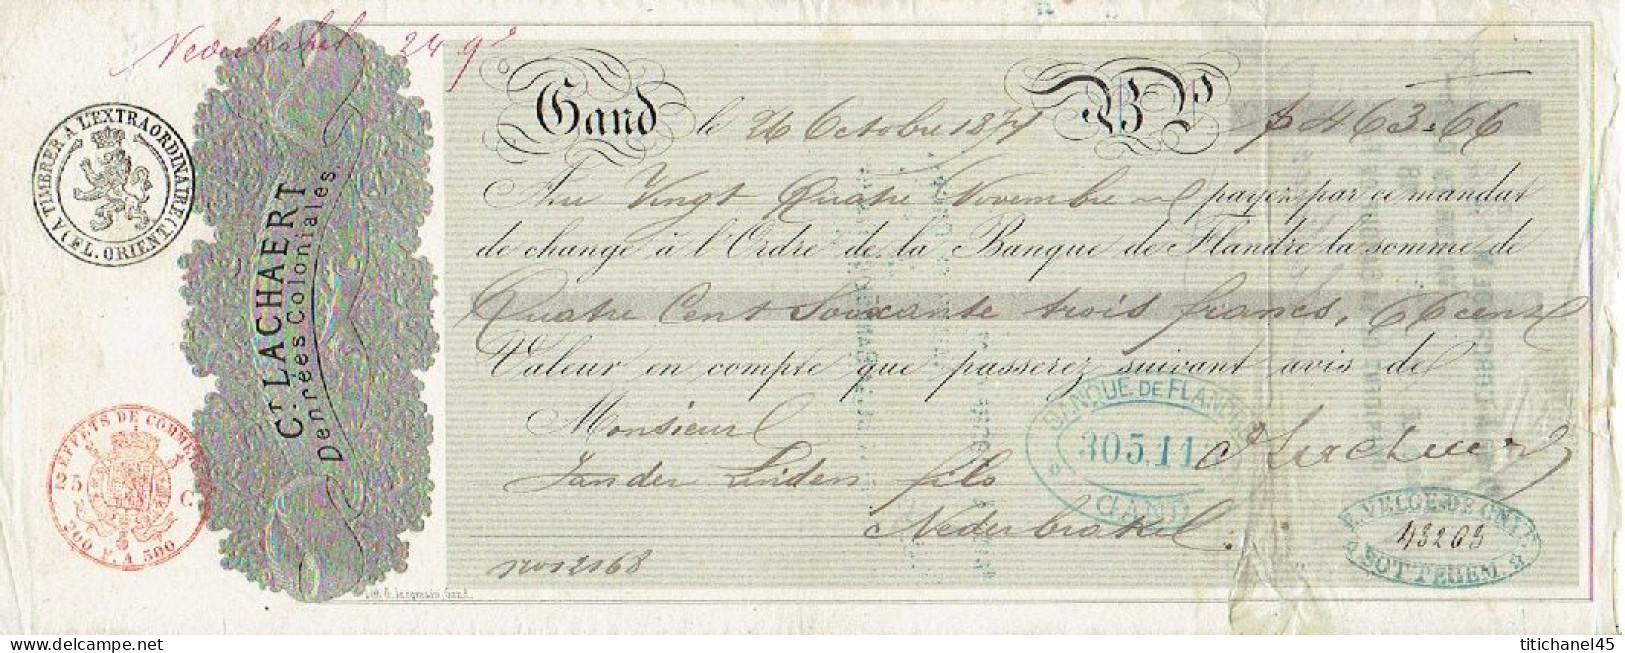 Nederbrakel 24 9e
A TIMBRER A L'EXTRAORDINAIRE (FL. ORIENT.)
Ct LACHAERT
Denrées Coloniales
EFFETS DE COMMERCE
25 C
200 F. A 500
Gand le 26 Octobre 1871 BP 463.66
Au Vingt Quatre Novembre payez par ce mandat
de change à l'Ordre de la Banque de Flandre la somme de
Quatre Cent Soixante trois francs, 66 cent
Valeur en compte que passerez suivant avis de
Monsieur
Van der Linden fils
Nederbrakel.
BANQUE DE FLANDRE
305.11
GAND
43203
SOTTEGEM
Lith. G. Jacqmain, Gand.
titichanel45